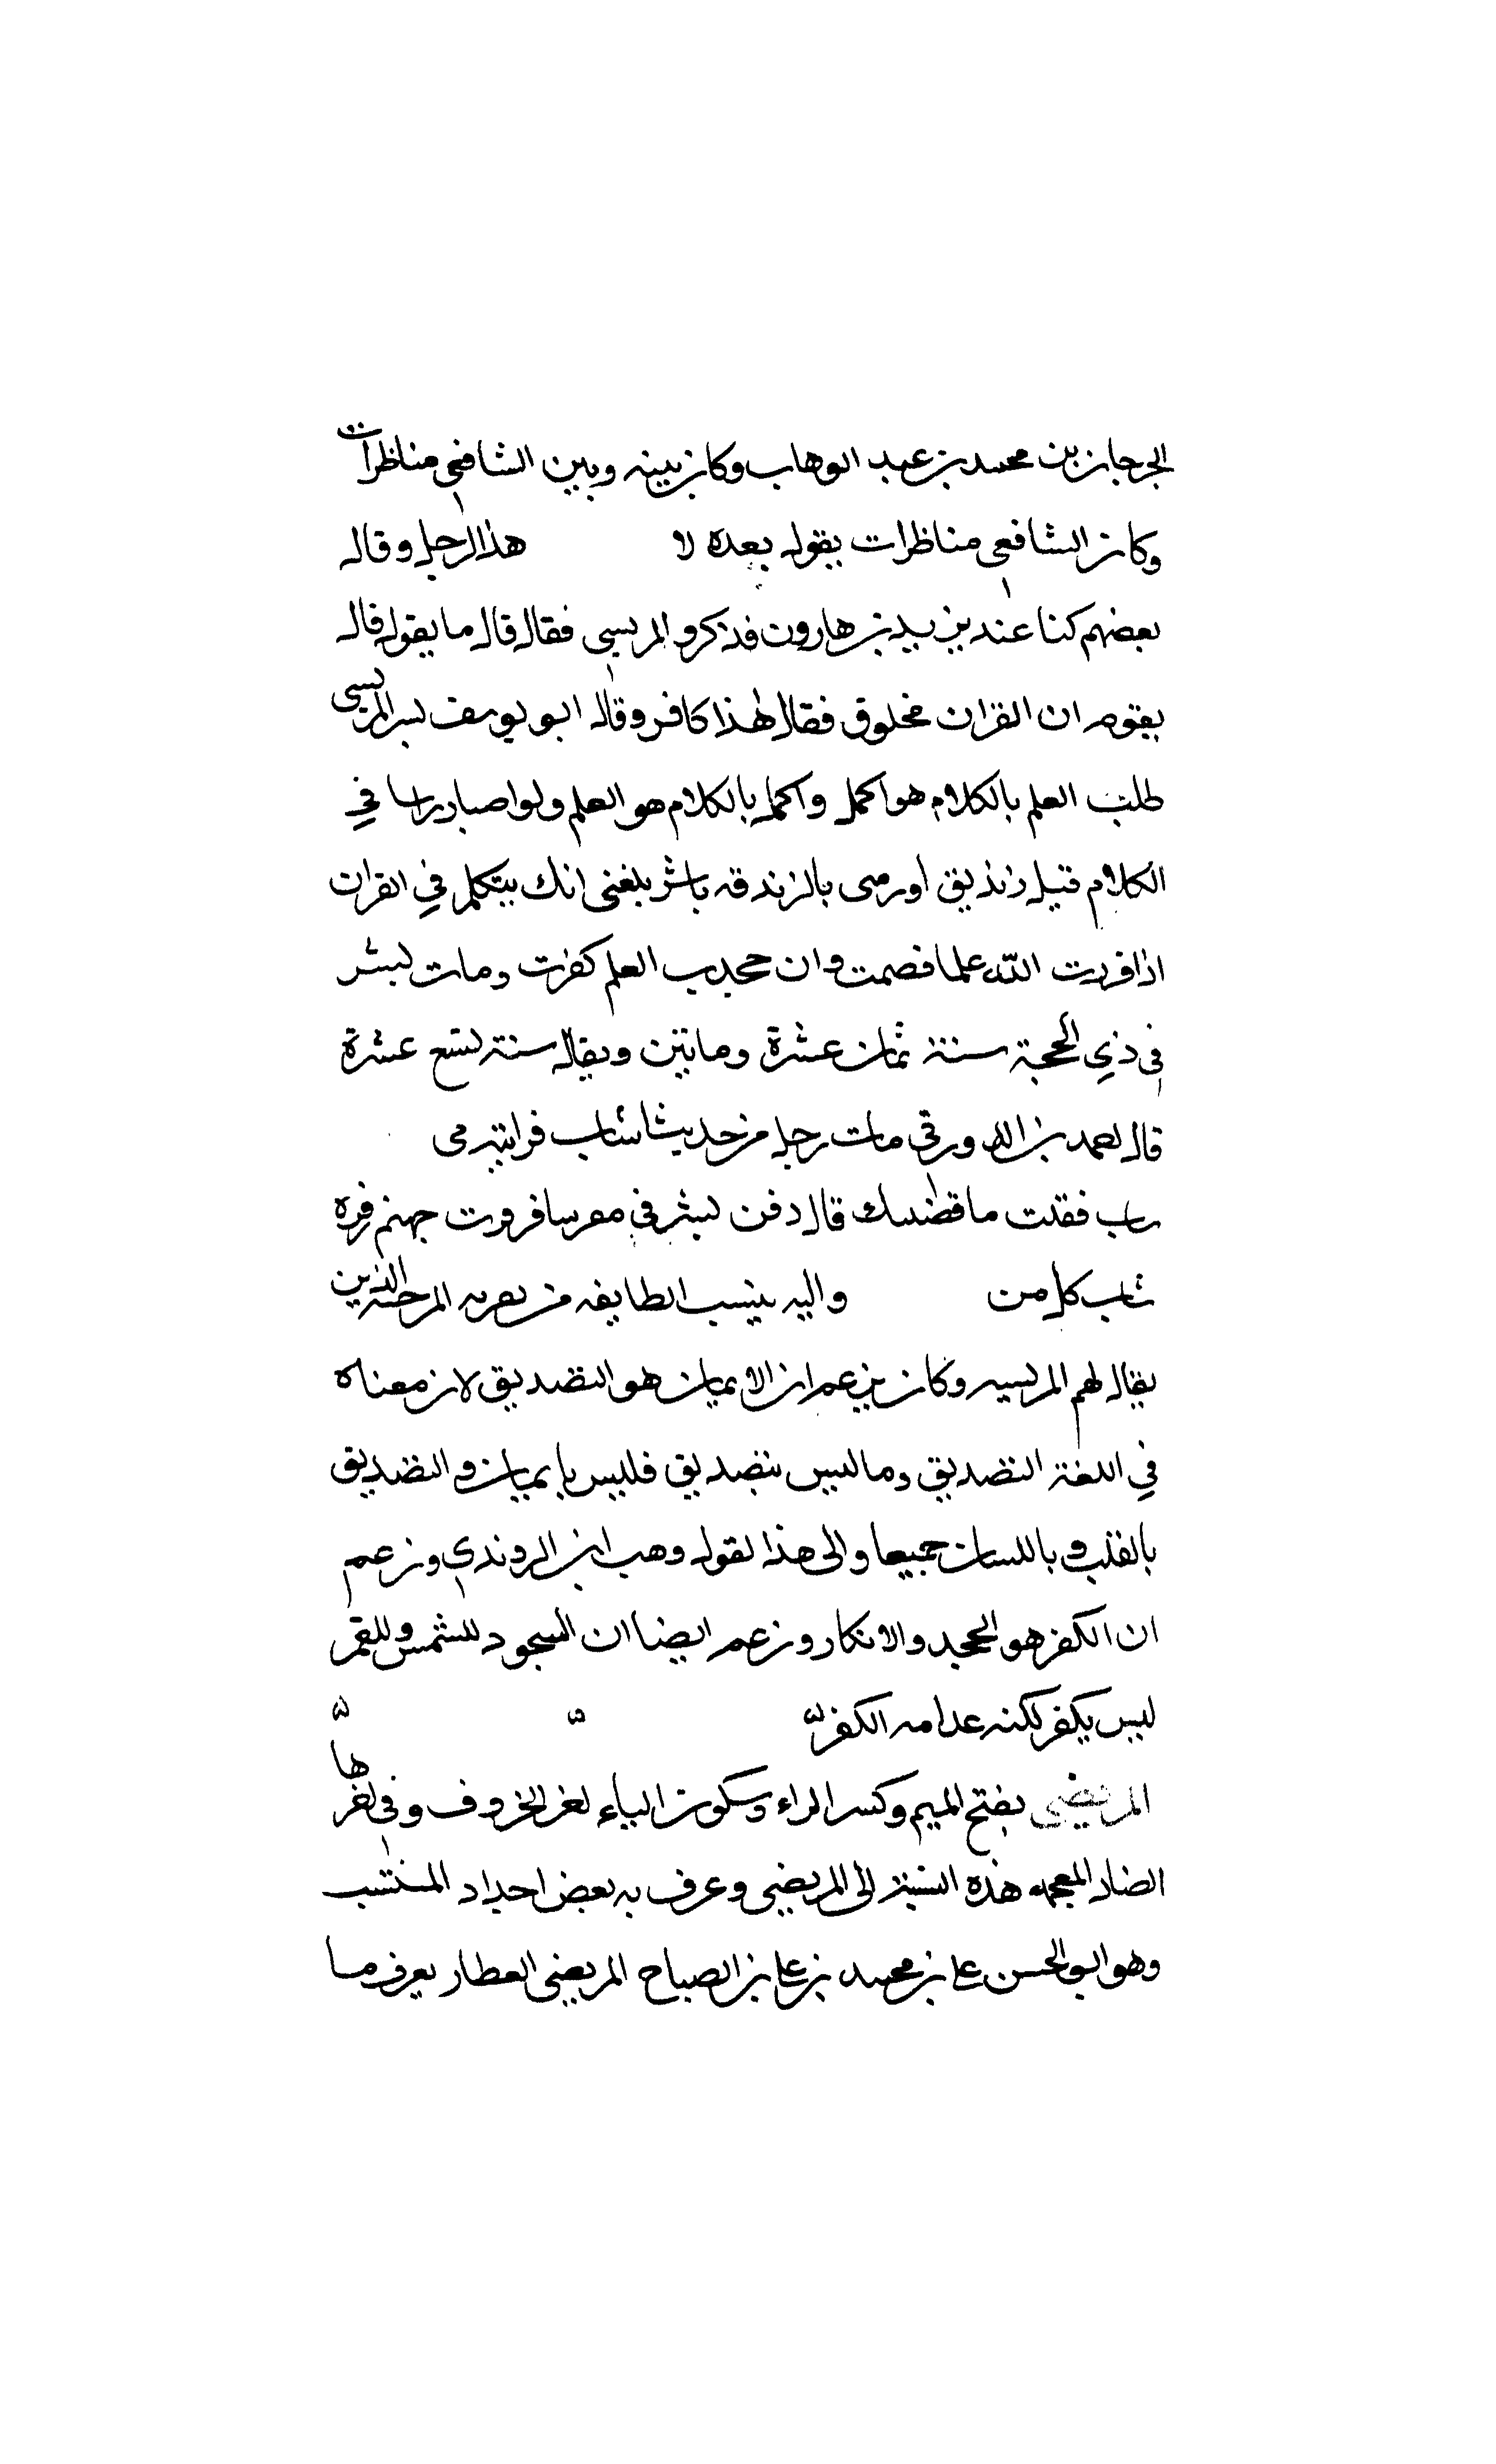 الجرجان بن محمد بن عبد الوهاب وكان بينه وبين الشافعي مناظرات
وكان الشافعي مناظرات يقول بعده لا هذا الرجل وقال
بعضهم كنا عند يزيد بن هارون فذكرو المريسي فقال قال ما يقول قال
يقوم ان القران مخلوق فقال هذا كافر وقال ابو يوسف لبشر المريسي
طلب العلم بالكلام هو الجهل والجهل بالكلام هو العلم ولو اصبا دراسا في
الكلام قيل زنديق او رمى بالزندقه باشر بلغني انك يتكلم في القران
اذا قررت الله علما فصمت وان جحدب العلم كفرت ومات لبشر
في ذي الحجة سنة ثمان عشرة وماتين ويقال سنة تسع عشرة
قال احمد بن الدورقي مات رجل من حديثا شاب فرايته مى
ساب فقلت ما قضىىك قال دفن لبشر في فروت جهنم فره
شاب كل من واليه ينسب الطايفه من المرجئه الذين
يقال لهم المريسيه وكان يزعم ان الايمان هو التصديق لان معناه
في اللغة التصديق وما ليس بتصديق فليس بايمان و التصديق
بالقلب و باللسان جميعا والى هذا لقول وهب ابن الروندي وزعم
ان الكفر هو الجحد والانكار وزعم ايضا ان السجود للشمس وللقمر
ليس بكفر لكنه علامه الكفر
المريضي بفتح الميم وكسر الراء وسكون الياء لغر الحروف وفي لغرها
الضاد المعجمه هذه النسبة الى المريضي وعرف به بعض اجداد المنتسب
وهو ابو الحسن علي بن محمد بن علي بن الصباح المريضي العطار يعرف ما